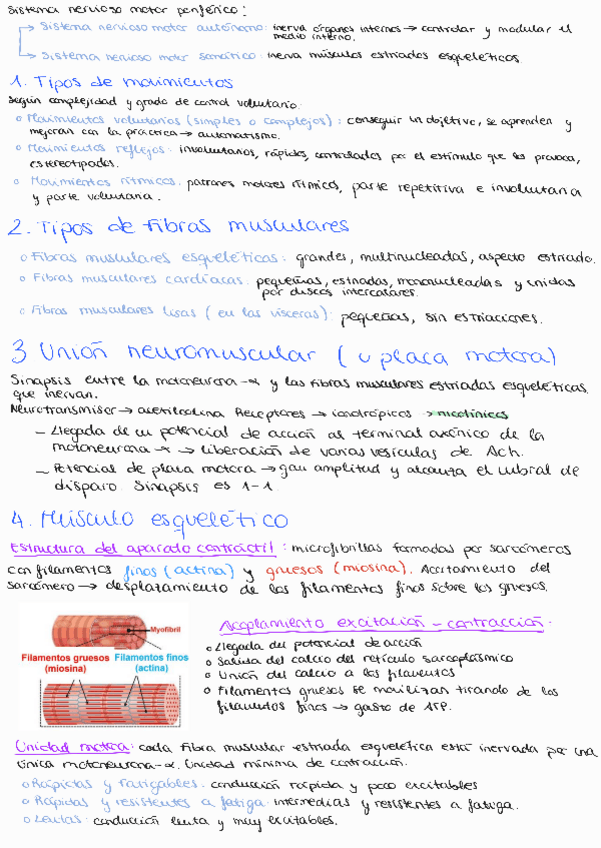 Sistema nervioso motor periférico:
→ Sistema nervioso motor autónomo: inerva órganos internos → controlar y modular el
medio interno.
→ Sistema nervioso motor somático: inerva músculos estriados esqueléticos.
1. Tipos de movimientos
Según complejidad y grado de control voluntario.
o Movimientos voluntarios (simples o complejos): conseguir un objetivo, se aprenden y
mejoran con la práctica → automatismo.
o Movimientos reflejos: involuntarios, rápidos, controlados por el estímulo que los provoca,
estereotipados.
o Movimientos rítmicos: patrones motores rítmicos, parte repetitiva e involuntaria
y parte voluntaria.
2. Tipos de fibras musculares
o Fibras musculares esqueléticas: grandes, multinucleadas, aspecto estriado.
o Fibras musculares cardíacas: pequeñas, estriadas, mononucleadas y unidas
por discos intercalares.
o Fibras musculares lisas (en las vísceras): pequeñas, sin estriaciones.
3 Unión neuromuscular (u placa motora)
Sinapsis entre la motoneurona-α y las fibras musculares estriadas esqueléticas
que inervan.
Neurotransmisor → acetilcolina Receptores → ionotrópicos → nicotínicos
— Llegada de un potencial de acción al terminal axónico de la
motoneurona-α → liberación de varias vesículas de Ach.
— Potencial de placa motora → gan amplitud y alcanza el umbral de
disparo. Sinapsis es 1-1.
4. Músculo esquelético
Estructura del aparato contráctil: microfibrillas formadas por sarcómeros
con filamentos finos (actina) y gruesos (miosina). Acortamiento del
sarcómero → desplazamiento de los filamentos finos sobre los gruesos.
Myofibril
Filamentos gruesos (miosina)
Filamentos finos (actina)
Acoplamiento excitación - contracción.
o Llegada del potencial de acción
o Salida del calcio del retículo sarcoplásmico
o Unión del calcio a los filamentos
o Filamentos gruesos se movilizan tirando de los
filamentos finos → gasto de ATP.
Unidad motora: cada fibra muscular estriada esquelética está inervada por una
única motoneurona-α. Unidad mínima de contracción.
o Rápidas y fatigables: conducción rápida y poco excitables
o Rápidas y resistentes a fatiga: intermedias y resistentes a fatiga.
o Lentas: conducción lenta y muy excitables.